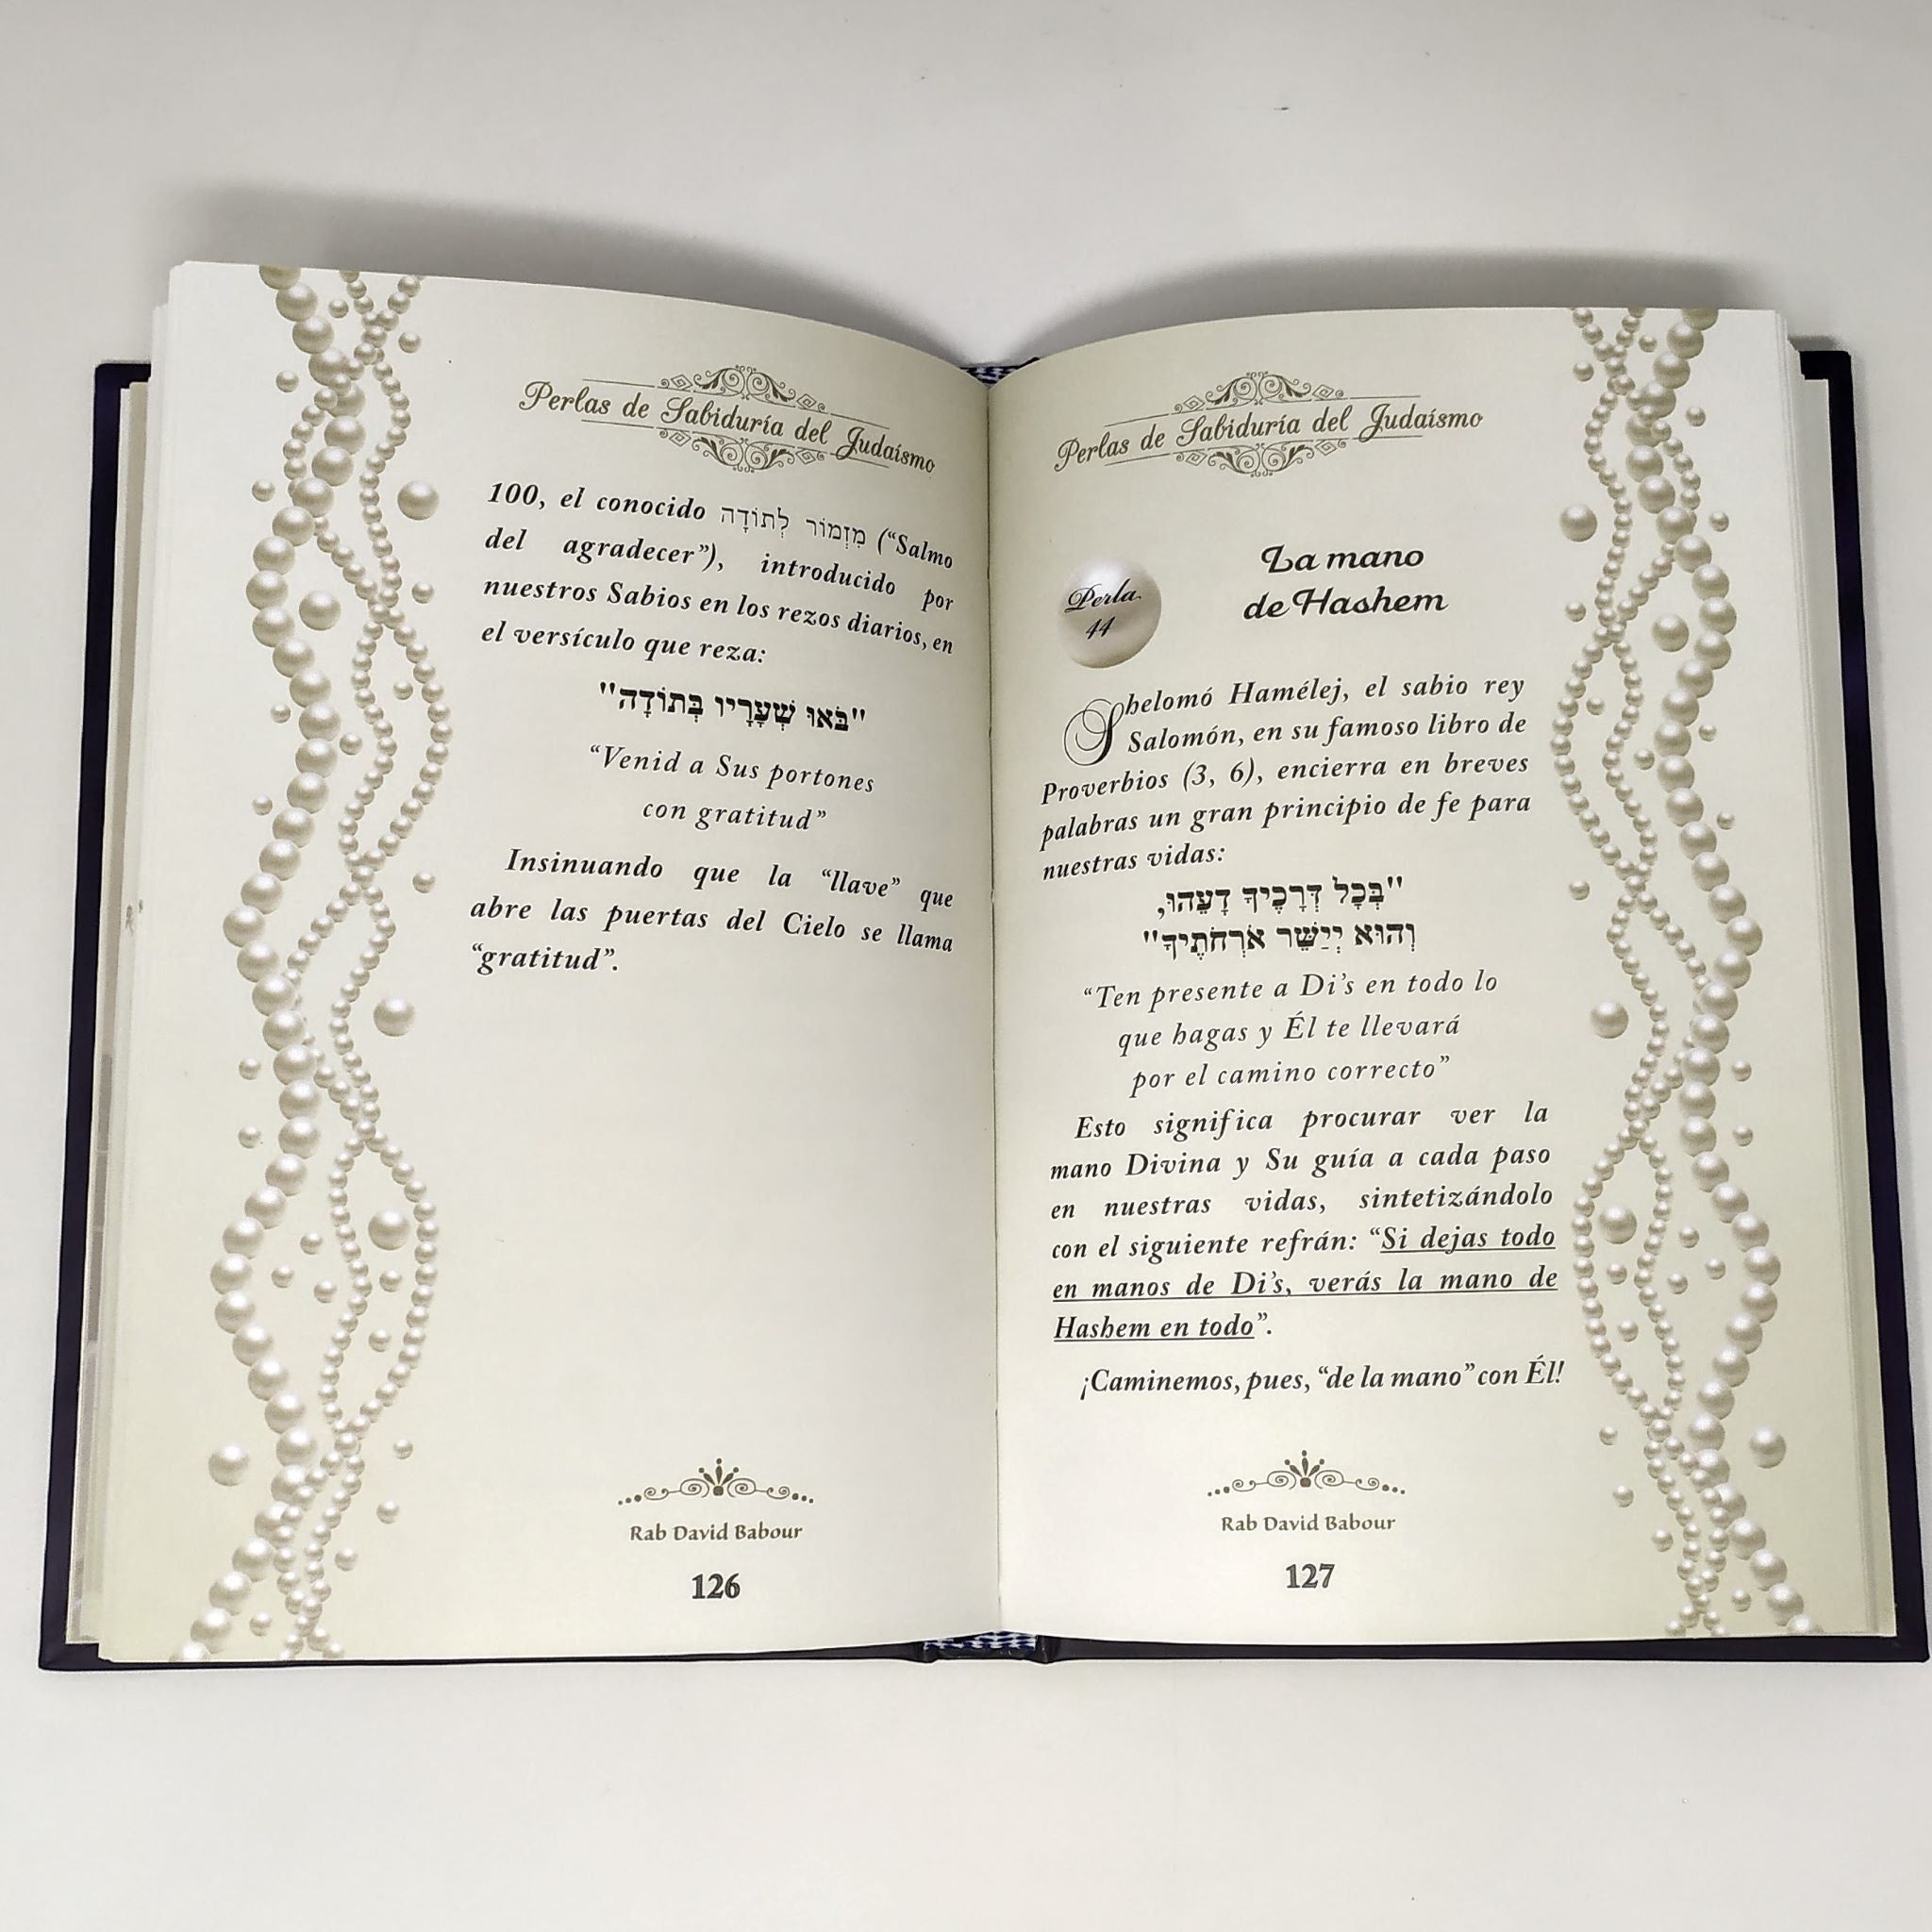 Perlas de Sabiduría del Judaísmo
100, el conocido מִזְמוֹר לְתוֹדָה (“Salmo
del agradecer”), introducido por
nuestros Sabios en los rezos diarios, en
el versículo que reza:
"בֹּאוּ שְׁעָרָיו בְּתוֹדָה"
“Venid a Sus portones
con gratitud”
Insinuando que la “llave” que
abre las puertas del Cielo se llama
“gratitud”.
Rab David Babour
126
Perlas de Sabiduría del Judaísmo
Perla
44
La mano
de Hashem
Shelomó Hamélej, el sabio rey
Salomón, en su famoso libro de
Proverbios (3, 6), encierra en breves
palabras un gran principio de fe para
nuestras vidas:
"בְּכָל דְּרָכֶיךָ דָעֵהוּ,
וְהוּא יְיַשֵּׁר אֹרְחֹתֶיךָ"
“Ten presente a Di’s en todo lo
que hagas y Él te llevará
por el camino correcto”
Esto significa procurar ver la
mano Divina y Su guía a cada paso
en nuestras vidas, sintetizándolo
con el siguiente refrán: “Si dejas todo
en manos de Di’s, verás la mano de
Hashem en todo”.
¡Caminemos, pues, “de la mano” con Él!
Rab David Babour
127